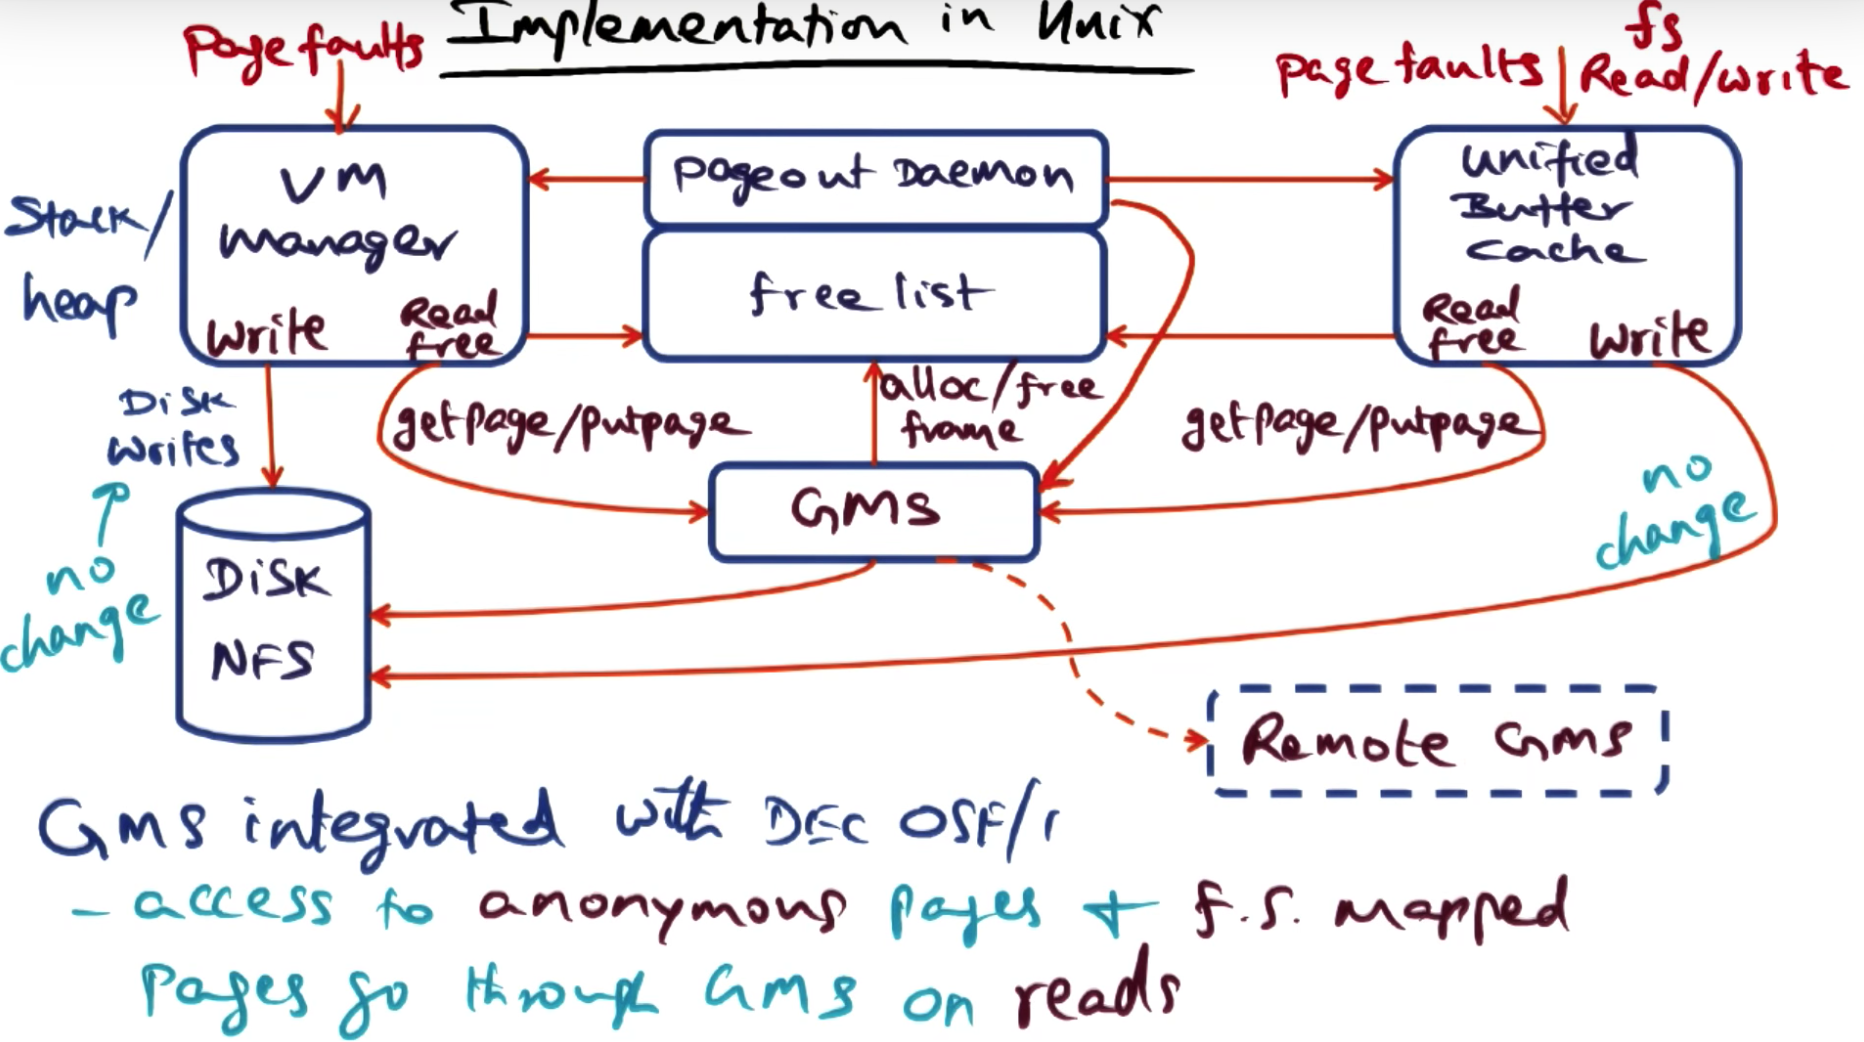 Implementation in Unix
Page faults
fs
page faults
Read/write
VM
Manager
Write
Read
free
Stack/
heap
Pageout Daemon
free list
unified
Buffer
Cache
Read
free
Write
Disk
writes
no
change
getpage/putpage
alloc/free
frame
getpage/putpage
no
change
GMS
DISK
NFS
Remote GMS
GMS integrated with DEC OSF/1
- access to anonymous pages + f.s. mapped
pages go through GMS on reads